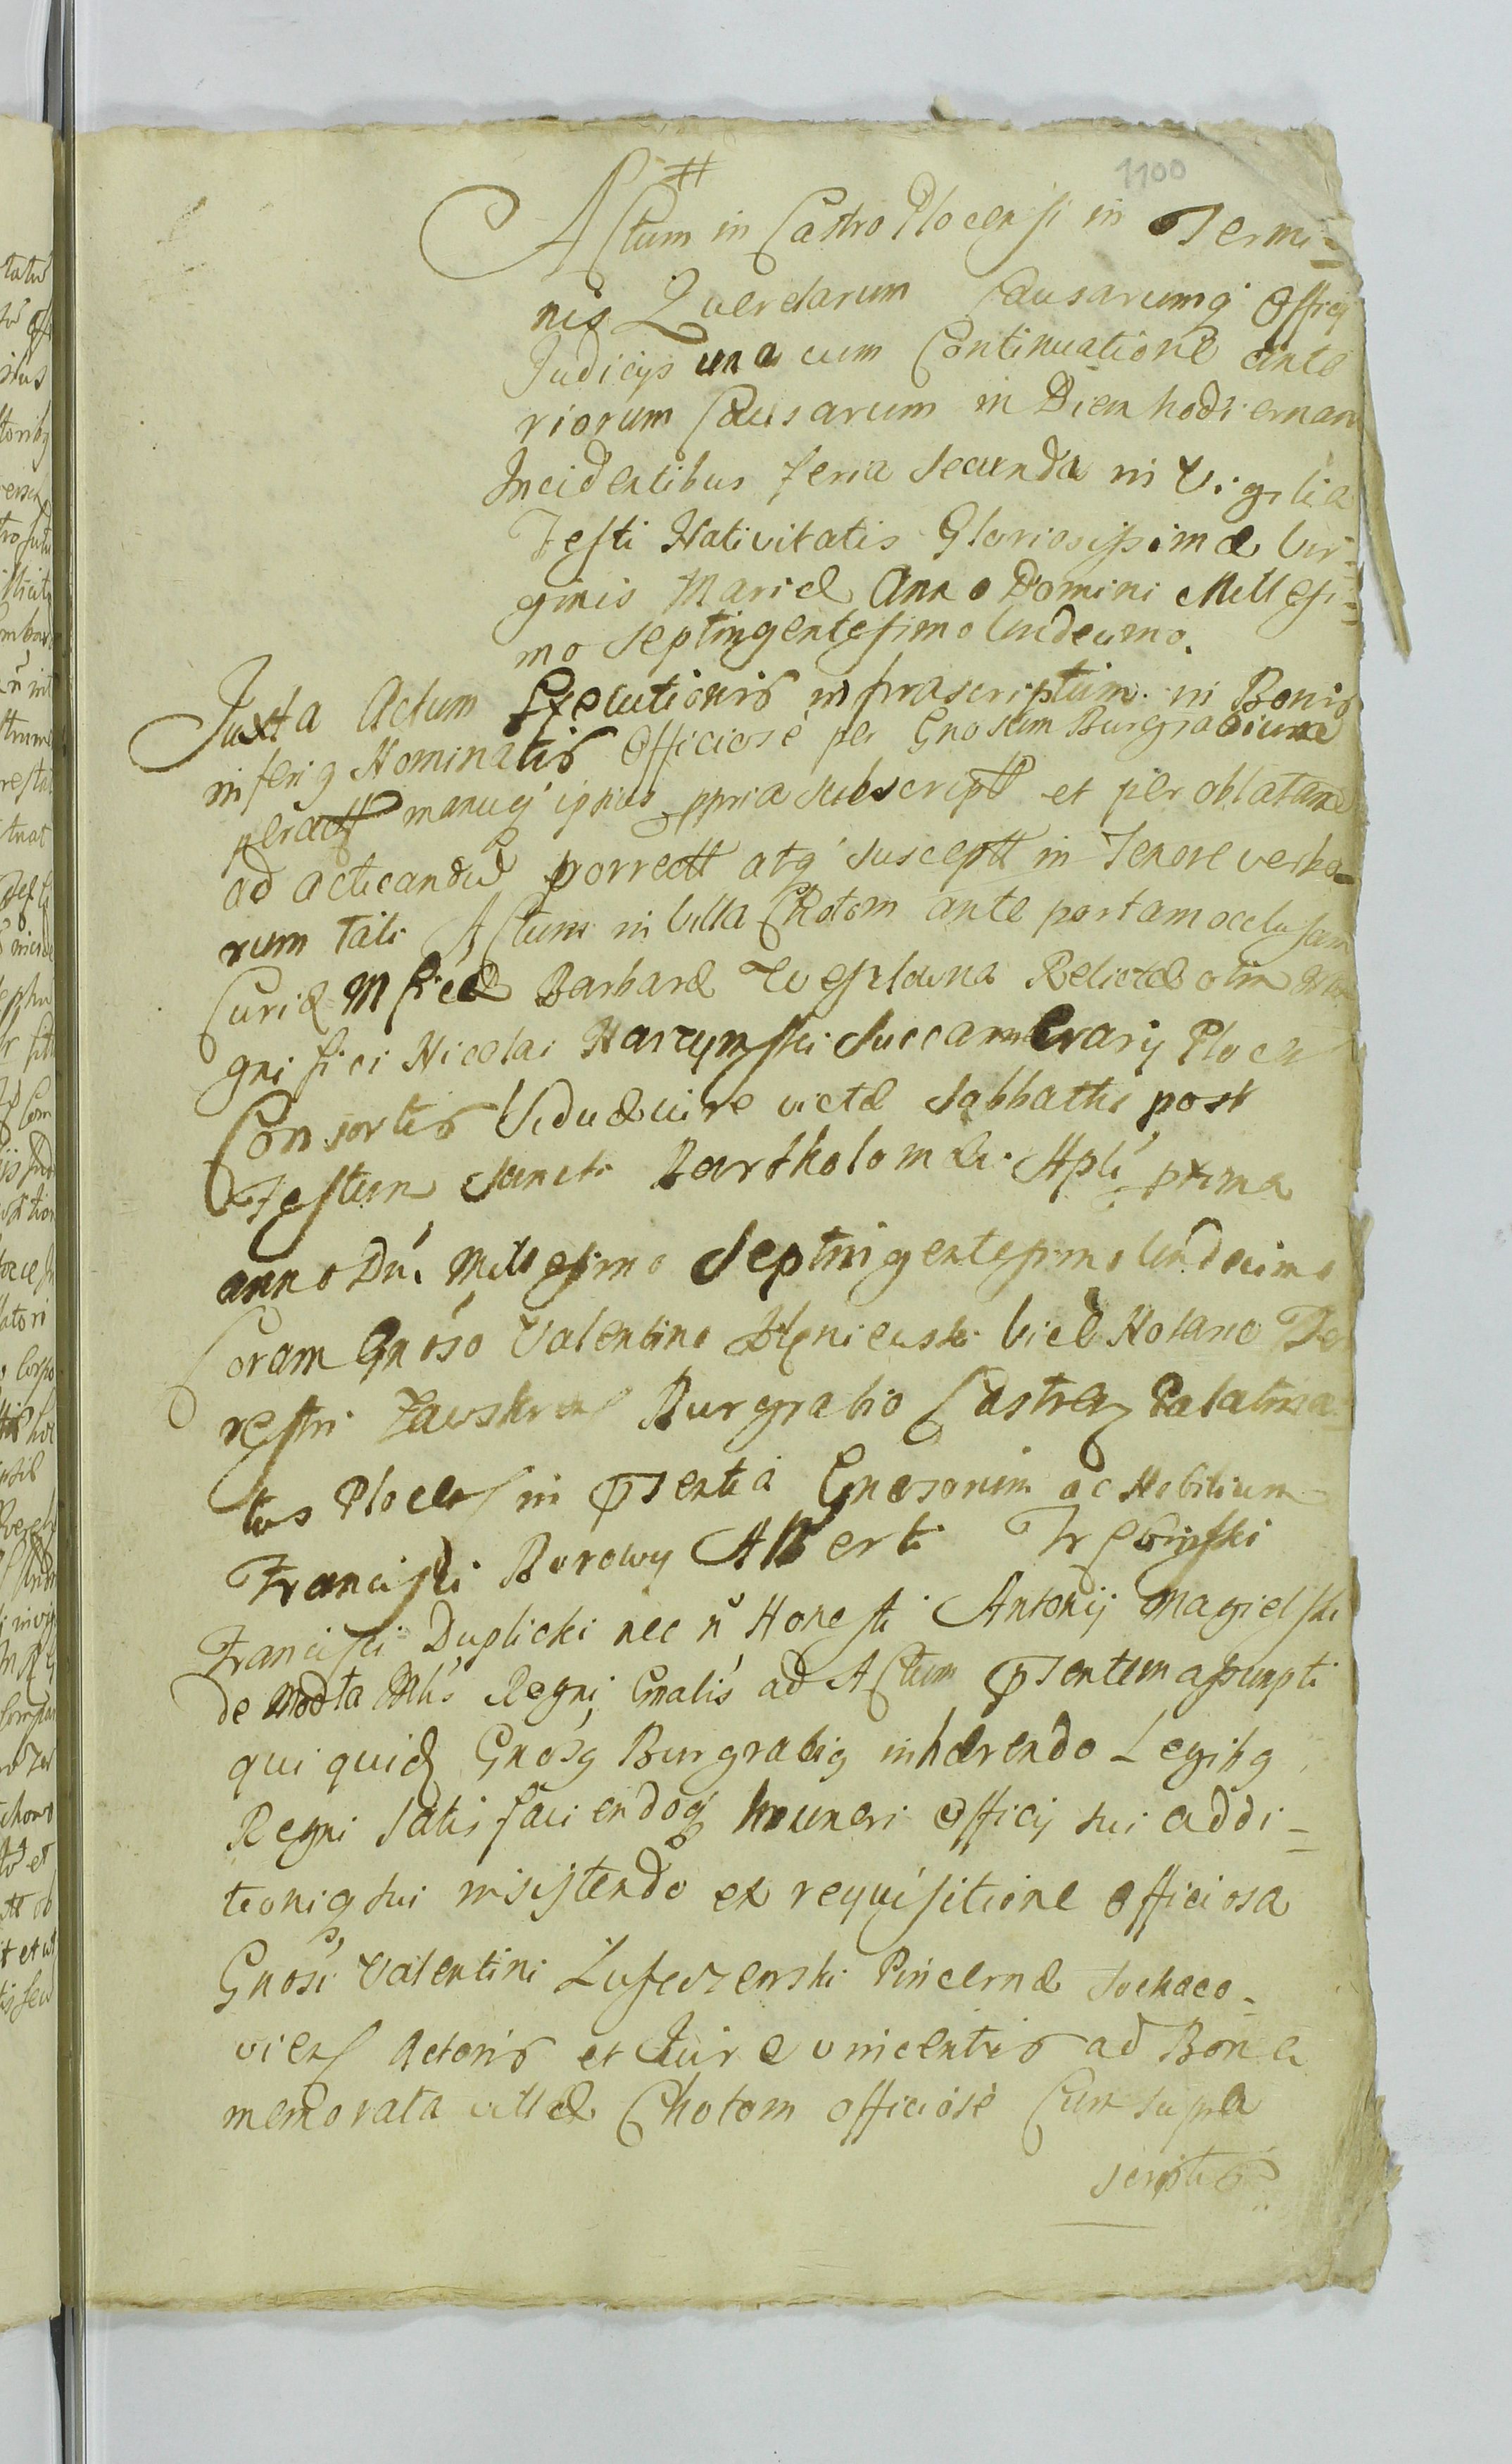 1100
Actum in Castro Plocensi in Termi=
nis Querelarum Causarumq' Officij
Judicijs una cum Continuatione ante
riorum Causarum in Diem hodiernam
Incidentibus feria secunda in Vigilia
Festi Nativitatis Gloriosissimæ Vir=
ginis Mariæ Anno Domini Millesi=
mo Septingentesimo Undecimo.
Juxta Actum Executionis infrascriptum in Bonis
inferig Nominatis Officiose per Gnosum Burgrabium
peractt manuq' ipsius ppria subscriptt et per oblatam
ad acticandu porrectt atq' susceptt in Tenore verbo=
rum tali Actum in Villa Chotom ante portam occlusam
Curiæ Mficæ Barbaræ Relictæ olim Ma
gnifici Nicolai Narzymski Succamerarij Plocen
Consortis Viduæ iure victæ Sabbatho post
Festum Sancti Bartholomæi Apli pxima
anno Dni Millesimo Septingentesimo Undecimo
Coram Gnoso Valentino Vice Notario Ter
restri Zawskren Burgrabio Castren Palatina=
tus Plocen in psentia Gnosorum ac Nobilium
Francisci Borowy Alberti
Francisci Duplicki nec n Honesti Antonij Magielski
de Mlis Regni Gnalis ad Actum psentem assumpti
qui quid Gnosg Burgrabig inhærendo Legibg
Regni satisfaciendoq' muneri Officij sui addi=
tionig sui insistendo ex requisitione officiosa
Gnosi Valentini Pincernæ Sochaco=
vien Actoris et Jure vincentis ad Bona
memorata villæ Chotom officiose cum supra
scriptis